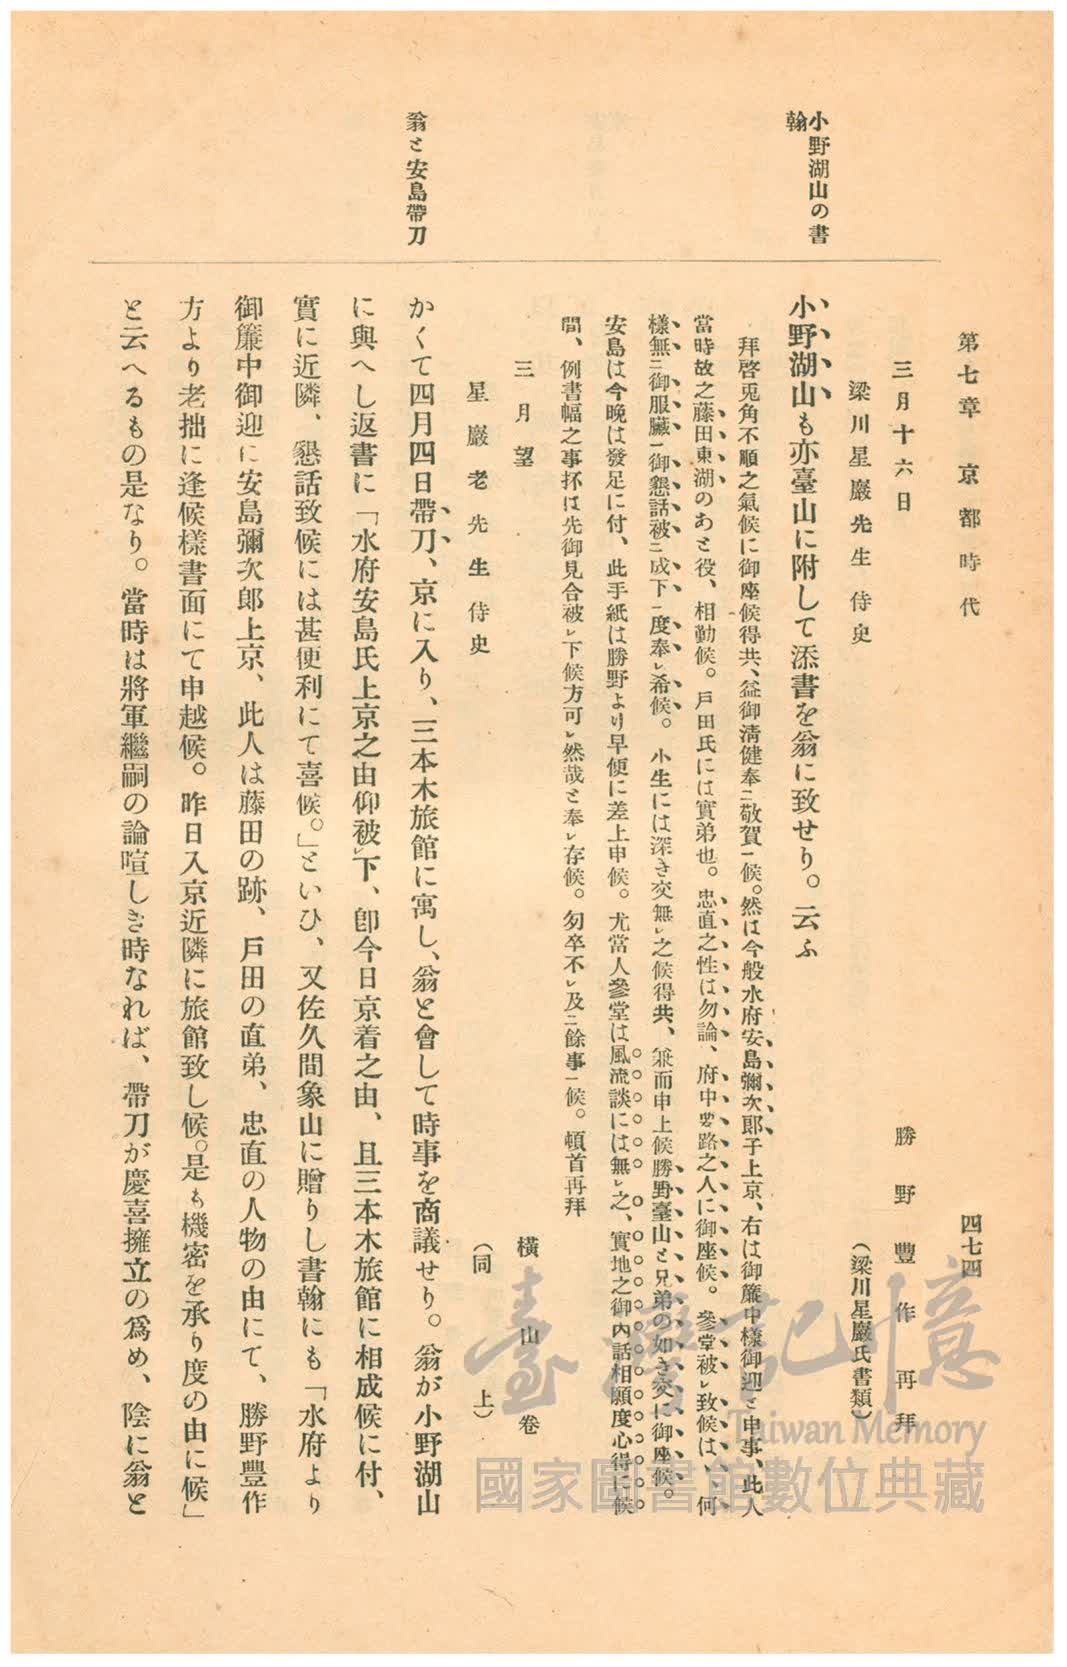 第七章 京都時代 四七四
三月十六日 勝野豐作再拜
梁川星巖先生侍史 (梁川星巖氏書類)
小野湖山の書
翰
小野湖山も亦臺山に附して添書を翁に致せり。云ふ
拜啓兎角不順之氣候に御座候得共、益御清健奉ニ敬賀一候。然は今般水府安島彌次郎子上京、右は御簾中樣御迎と申事、此人
當時故之藤田東湖のあと役、相勤候。戸田氏には實弟也。忠直之性は勿論、府中要路之人に御座候。參堂被レ致候は、何
樣無ニ御服臟一御懇話被ニ成下一度奉レ希候。小生には深き交無レ之候得共、兼而申上候勝野臺山と兄弟の如き交に御座候。
安島は今晩は發足に付、此手紙は勝野より早便に差上申候。尤當人參堂は風流談には無レ之、實地之御内話相願度心得に候
間、例書幅之事抔は先御見合被レ下候方可レ然哉と奉レ存候。匆卒不レ及ニ餘事一候。頓首再拜
三月望 橫山卷
星巖老先生侍史 (同上)
翁と安島帶刀
かくて四月四日帶刀、京に入り、三本木旅館に寓し、翁と會して時事を商議せり。翁が小野湖山
に與へし返書に「水府安島氏上京之由仰被レ下、卽今日京着之由、且三本木旅館に相成候に付、
實に近隣、懇話致候には甚便利にて喜候。」といひ、又佐久間象山に贈りし書翰にも「水府より
御簾中御迎に安島彌次郎上京、此人は藤田の跡、戸田の直弟、忠直の人物の由にて、勝野豐作
方より老拙に逢候樣書面にて申越候。昨日入京近隣に旅館致し候。是も機密を承り度の由に候」
と云へるもの是なり。當時は將軍繼嗣の論喧しき時なれば、帶刀が慶喜擁立の爲め、陰に翁と
臺灣記憶
Taiwan Memory
國家圖書館數位典藏